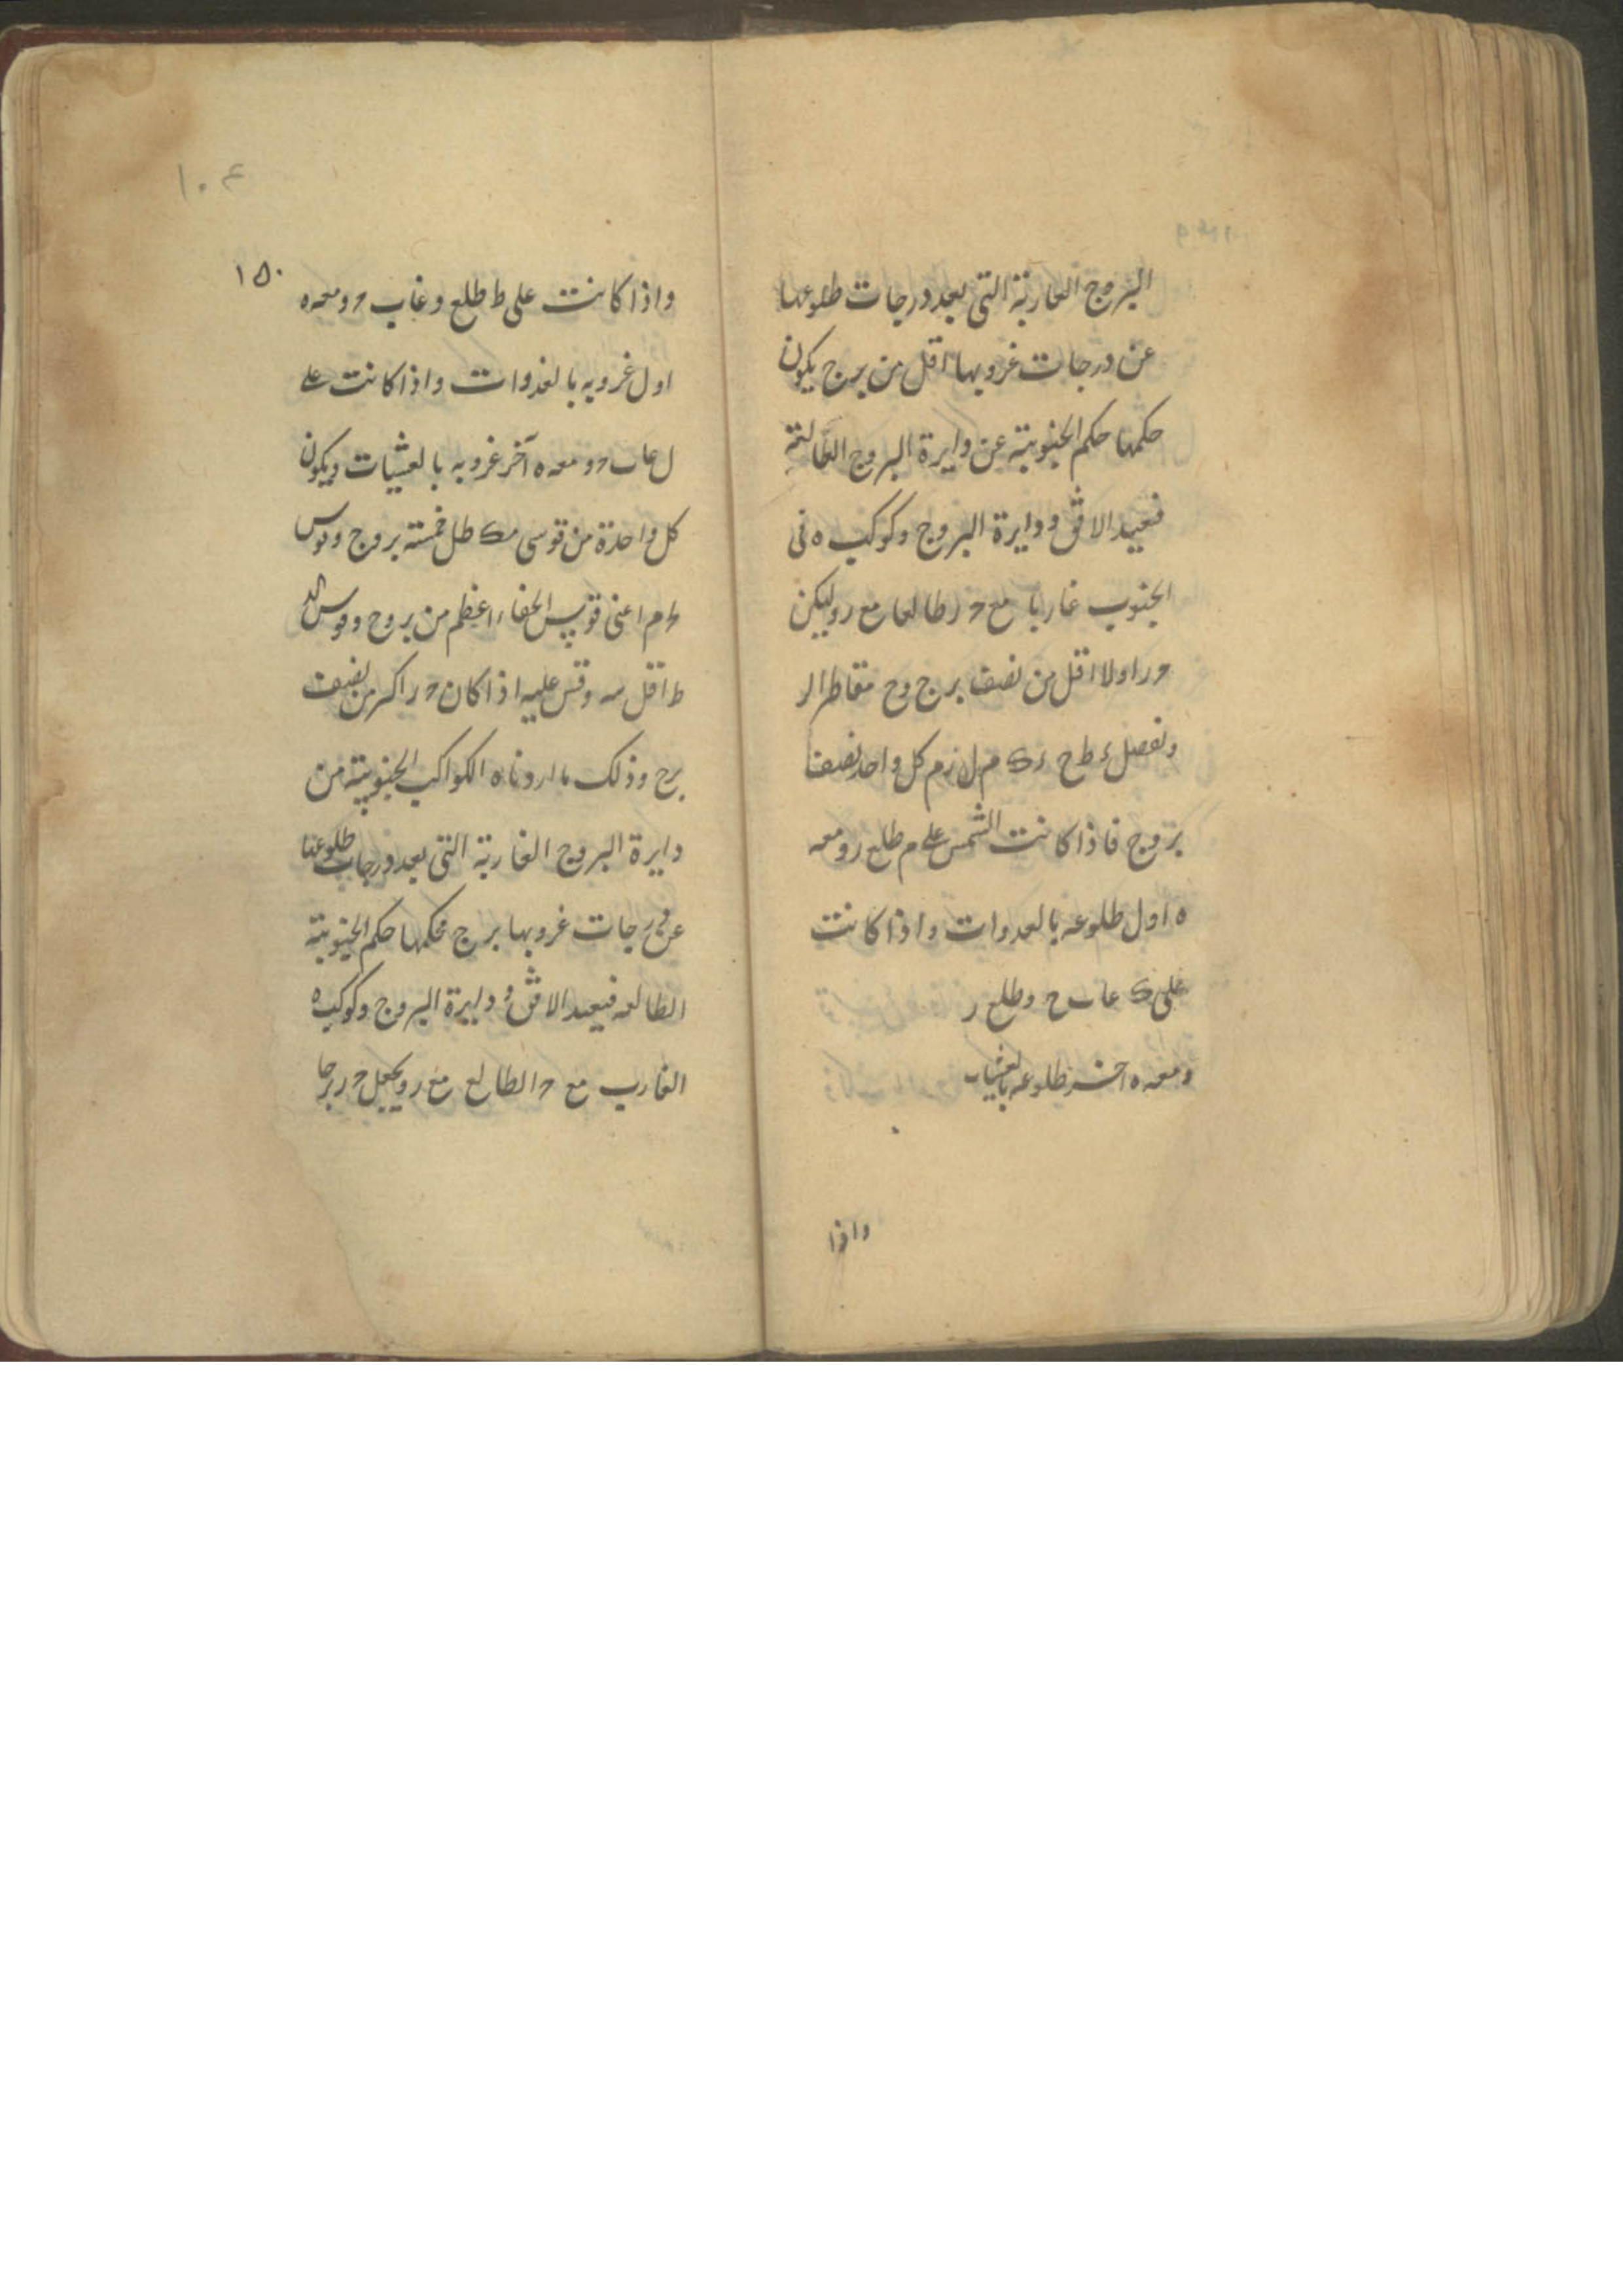 البروج الغاربة التى بعد درجات طلوعها
عن درجات غروبها اقل من برج يكون
حكمها حكم الجنوبية عن دايرة البروج الطالعة
فنعيد الافق ودايرة البروج وكوكب ه فى
الجنوب غاربا مع ح ر طالعا مع ر وليكن
ح ر اولا اقل من نصف برج وح مقاطرا لر
ونفصل ط ح ك م ل ر م كل واحد نصف
بروج فاذا كانت الشمس على م طلع ر ومعه
ه اول طلوعه بالغدوات واذا كانت
على ك غاب ح وطلع ر
ومعه ه اخر طلوعه بالعشيات
واذا
١٠٤
١٥٠
واذا كانت على ط طلع و غاب ح ومعه ه
اول غروبه بالغدوات واذا كانت على
ل غاب ح ومعه ه آخر غروبه بالعشيات ويكون
كل واحدة من قوسى م ك ط ل خمسة بروج وقوس
م اعنى قوس الخفاء اعظم من بروج وقوس
ط اقل منه وقس عليه اذا كان ح ر اكثر من نصف
برج وذلك ما اردناه الكواكب الجنوبية من
دايرة البروج الغاربة التى بعد درجات طلوعنا
عن درجات غروبها برج فحكمها حكم الجنوبية
الطالعه فنعيد الافق و دايرة البروج وكوكب ه
الغارب مع ح الطالع مع ر ويجعل ح ر برجا